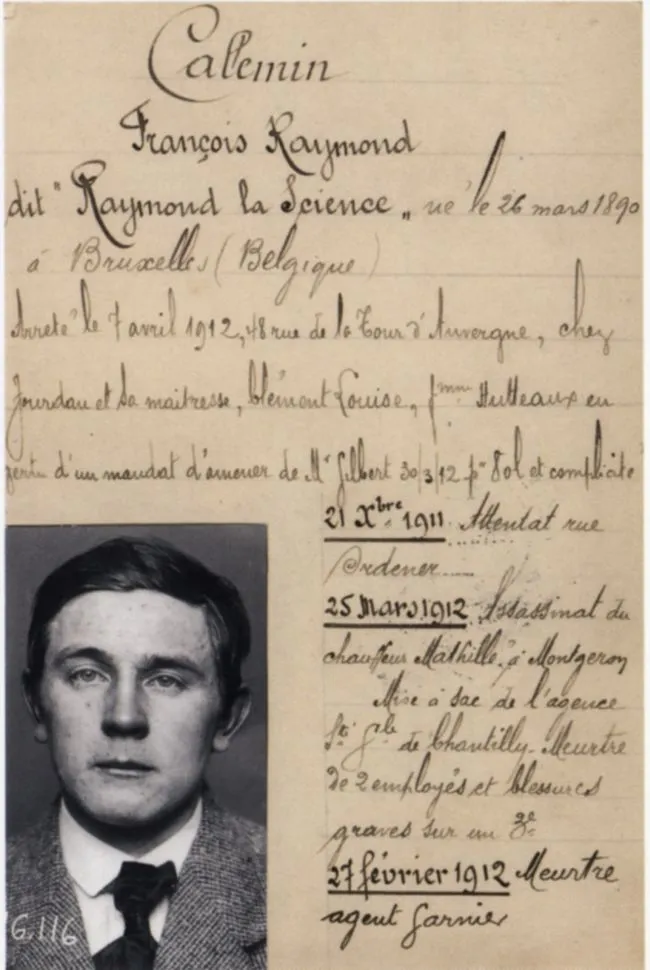 Callemin
François Raymond
dit "Raymond la Science" né le 26 mars 1890
à Bruxelles (Belgique)
Arrêté le 7 avril 1912, 48 rue de la Tour d'Auvergne, chez
Jourdan et sa maitresse, Clément Louise, fmme Hutteaux en
vertu d'un mandat d'amener de Mr Gilbert 30/3/12 pr Vol et complicité
21 Xbre 1911 Attentat rue
Ordener......
25 Mars 1912 Assassinat du
chauffeur Mathillé, à Montgeron
Mise à sac de l'agence
Sté Gle de Chantilly. Meurtre
de 2 employés et blessures
graves sur un 3e
27 février 1912 Meurtre
agent Garnier
G.116